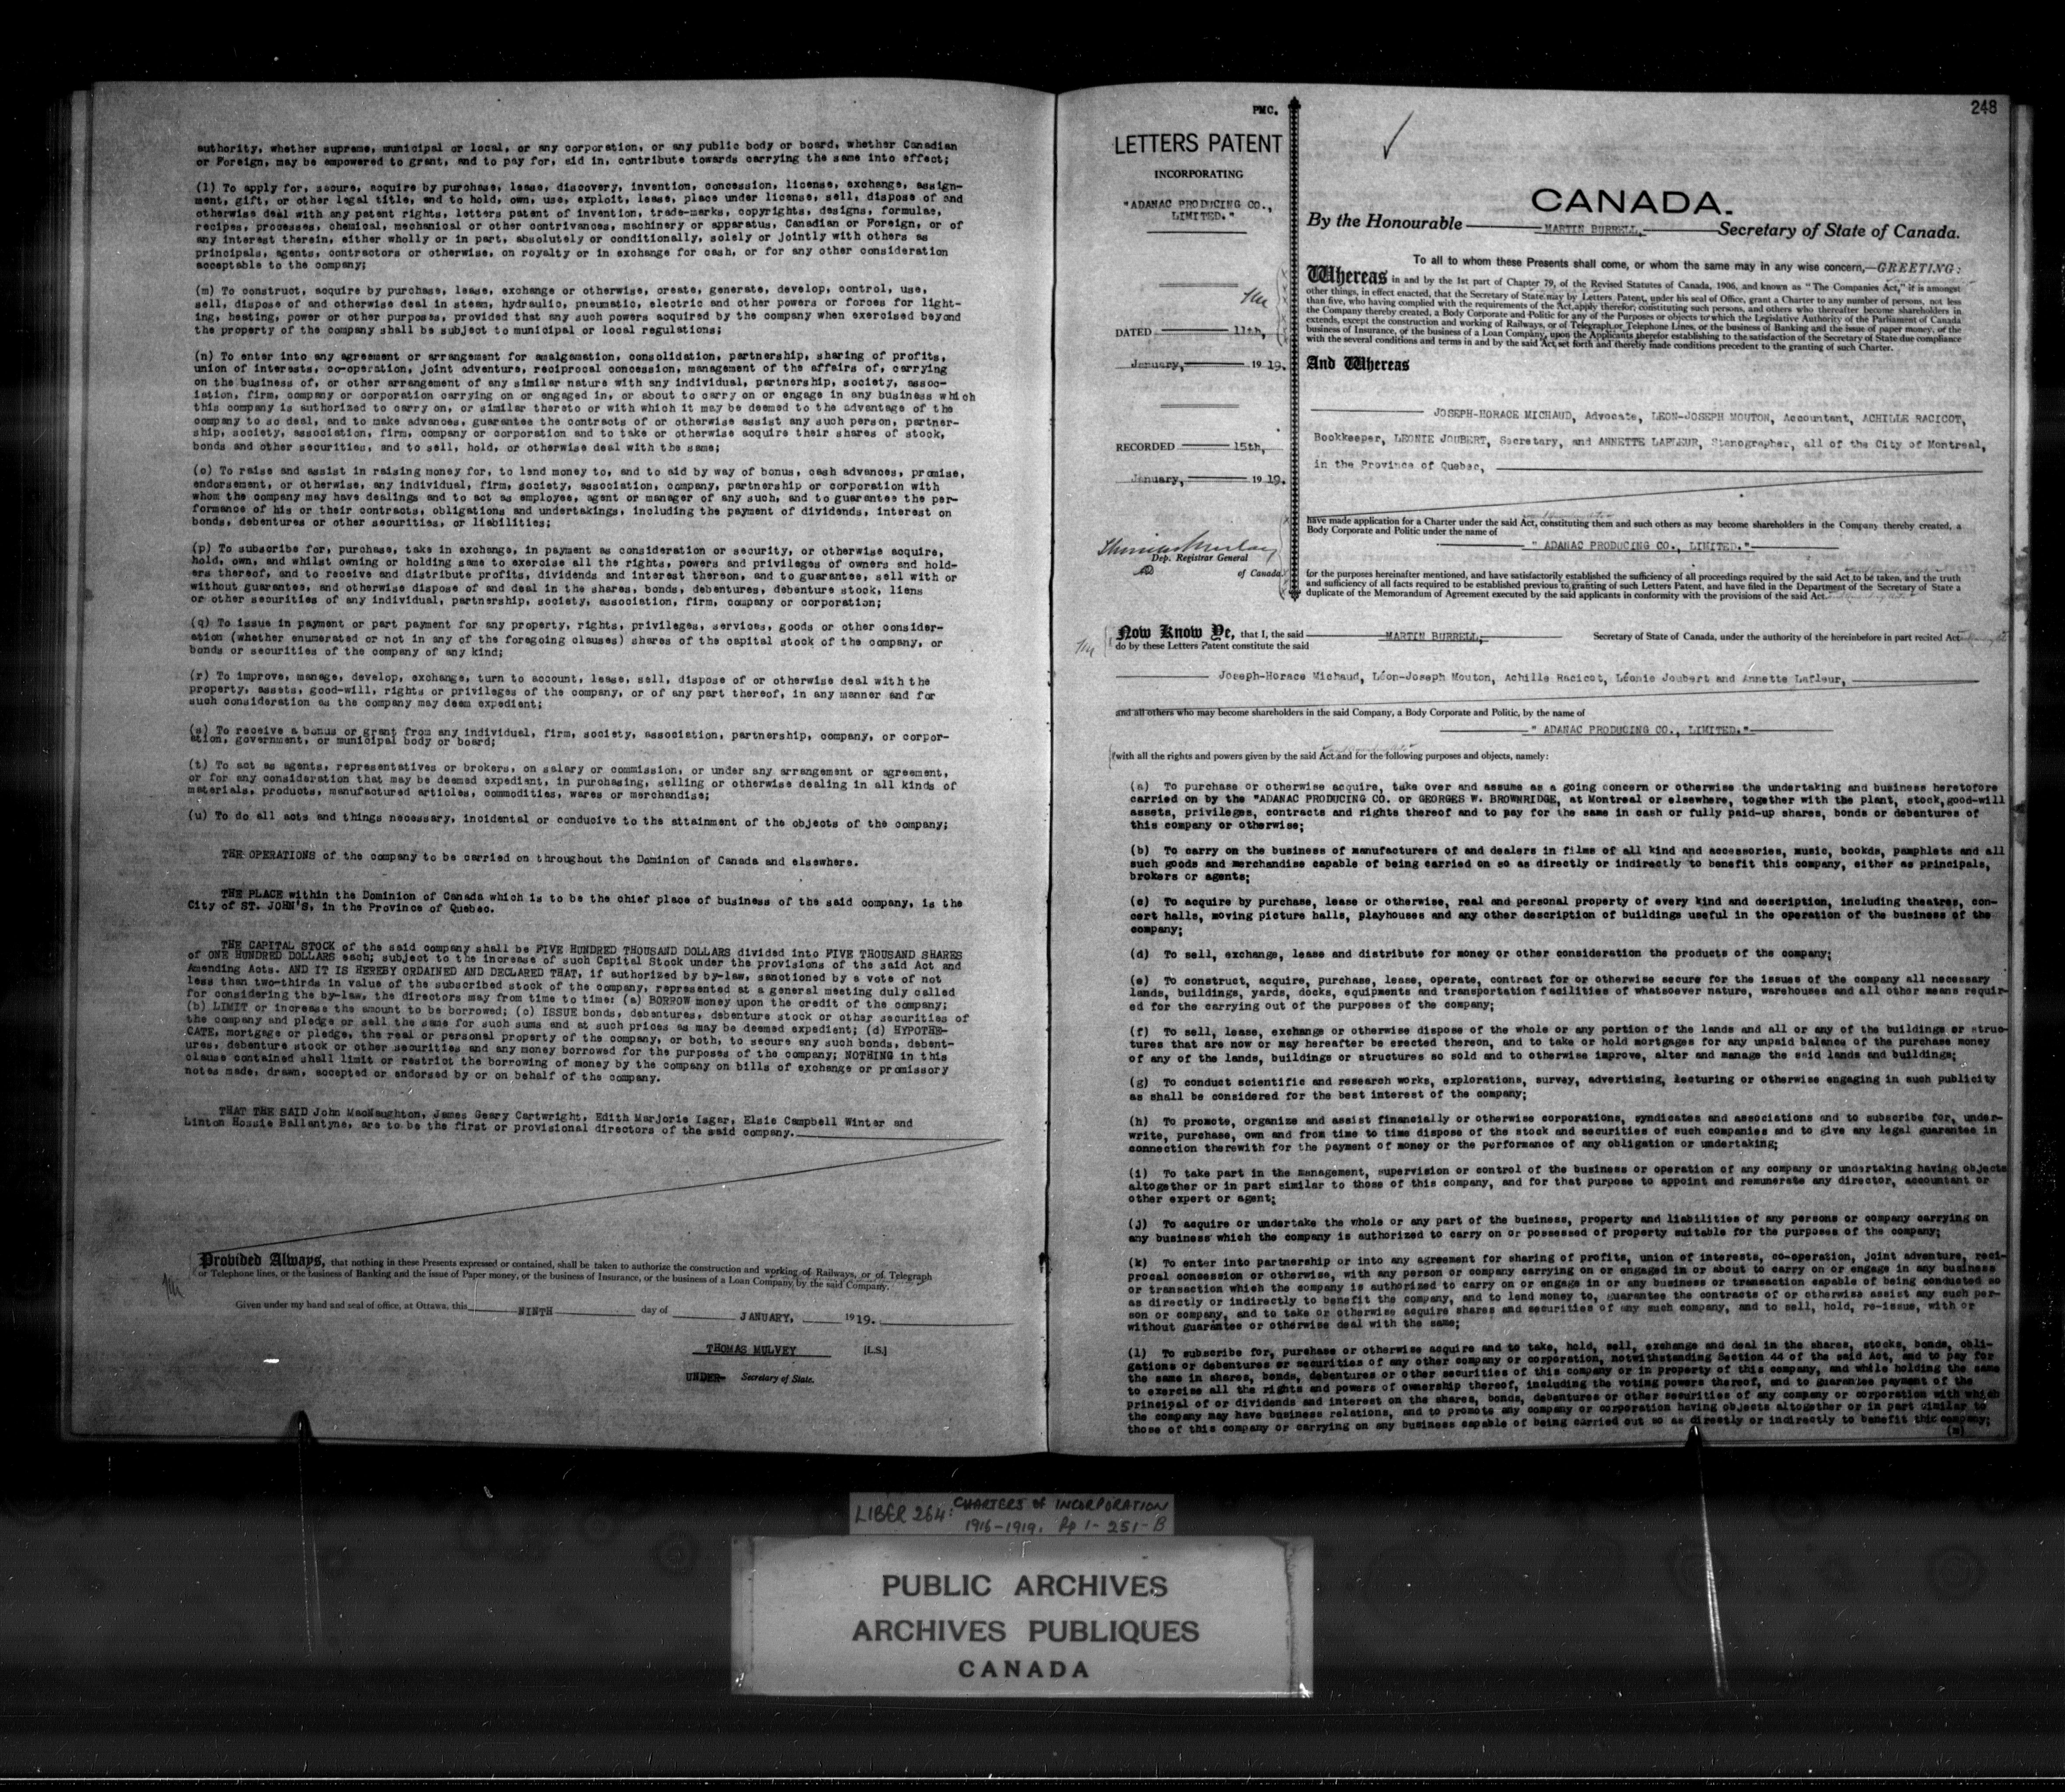 authority, whether supreme, municipal or local, or any corporation, or any public body or board, whether Canadian
or Foreign, may be empowered to grant, and to pay for, aid in, contribute towards carrying the same into effect;
(l) To apply for, secure, acquire by purchase, lease, discovery, invention, concession, license, exchange, assign-
ment, gift, or other legal title, and to hold, own, use, exploit, lease, place under license, sell, dispose of and
otherwise deal with any patent rights, letters patent of invention, trade-marks, copyrights, designs, formulae,
recipes, processes, chemical, mechanical or other contrivances, machinery or apparatus, Canadian or Foreign, or of
any interest therein, either wholly or in part, absolutely or conditionally, solely or jointly with others as
principals, agents, contractors or otherwise, on royalty or in exchange for cash, or for any other consideration
acceptable to the company;
(m) To construct, acquire by purchase, lease, exchange or otherwise, create, generate, develop, control, use,
sell, dispose of and otherwise deal in steam, hydraulic, pneumatic, electric and other powers or forces for light-
ing, heating, power or other purposes, provided that any such powers acquired by the company when exercised beyond
the property of the company shall be subject to municipal or local regulations;
(n) To enter into any agreement or arrangement for amalgamation, consolidation, partnership, sharing of profits,
union of interests, co-operation, joint adventure, reciprocal concession, management of the affairs of, carrying
on the business of, or other arrangement of any similar nature with any individual, partnership, society, assoc-
iation, firm, company or corporation carrying on or engaged in, or about to carry on or engage in any business which
this company is authorized to carry on, or similar thereto or with which it may be deemed to the advantage of the
company to so deal, and to make advances, guarantee the contracts of or otherwise assist any such person, partner-
ship, society, association, firm, company or corporation and to take or otherwise acquire their shares of stock,
bonds and other securities, and to sell, hold, or otherwise deal with the same;
(o) To raise and assist in raising money for, to lend money to, and to aid by way of bonus, cash advances, promise,
endorsement, or otherwise, any individual, firm, society, association, company, partnership or corporation with
whom the company may have dealings and to act as employee, agent or manager of any such, and to guarantee the per-
formance of his or their contracts, obligations and undertakings, including the payment of dividends, interest on
bonds, debentures or other securities, or liabilities;
(p) To subscribe for, purchase, take in exchange, in payment as consideration or security, or otherwise acquire,
hold, own, and whilst owning or holding same to exercise all the rights, powers and privileges of owners and hold-
ers thereof, and to receive and distribute profits, dividends and interest thereon, and to guarantee, sell with or
without guarantee, and otherwise dispose of and deal in the shares, bonds, debentures, debenture stock, liens
or other securities of any individual, partnership, society, association, firm, company or corporation;
(q) To issue in payment or part payment for any property, rights, privileges, services, goods or other consider-
ation (whether enumerated or not in any of the foregoing clauses) shares of the capital stock of the company, or
bonds or securities of the company of any kind;
(r) To improve, manage, develop, exchange, turn to account, lease, sell, dispose of or otherwise deal with the
property, assets, good-will, rights or privileges of the company, or of any part thereof, in any manner and for
such consideration as the company may deem expedient;
(s) To receive a bonus or grant from any individual, firm, society, association, partnership, company, or corpor-
ation, government, or municipal body or board;
(t) To act as agents, representatives or brokers, on salary or commission, or under any arrangement or agreement,
or for any consideration that may be deemed expedient, in purchasing, selling or otherwise dealing in all kinds of
materials, products, manufactured articles, commodities, wares or merchandise;
(u) To do all acts and things necessary, incidental or conducive to the attainment of the objects of the company;
THE OPERATIONS of the company to be carried on throughout the Dominion of Canada and elsewhere.
THE PLACE within the Dominion of Canada which is to be the chief place of business of the said company, is the
City of ST. JOHN'S, in the Province of Quebec.
THE CAPITAL STOCK of the said company shall be FIVE HUNDRED THOUSAND DOLLARS divided into FIVE THOUSAND SHARES
of ONE HUNDRED DOLLARS each; subject to the increase of such Capital Stock under the provisions of the said Act and
Amending Acts. AND IT IS HEREBY ORDAINED AND DECLARED THAT, if authorized by by-law, sanctioned by a vote of not
less than two-thirds in value of the subscribed stock of the company, represented at a general meeting duly called
for considering the by-law, the directors may from time to time: (a) BORROW money upon the credit of the company;
(b) LIMIT or increase the amount to be borrowed; (c) ISSUE bonds, debentures, debenture stock or other securities of
the company and pledge or sell the same for such sums and at such prices as may be deemed expedient; (d) HYPOTHE-
CATE, mortgage or pledge, the real or personal property of the company, or both, to secure any such bonds, debent-
ures, debenture stock or other securities and any money borrowed for the purposes of the company; NOTHING in this
clause contained shall limit or restrict the borrowing of money by the company on bills of exchange or promissory
notes made, drawn, accepted or endorsed by or on behalf of the company.
THAT THE SAID John MacNaughton, James Geary Cartwright, Edith Marjorie Isgar, Elsie Campbell Winter and
Linton Hossie Ballantyne, are to be the first or provisional directors of the said company.
Provided Always, that nothing in these Presents expressed or contained, shall be taken to authorize the construction and working of Railways, or of Telegraph
or Telephone lines, or the business of Banking and the issue of Paper money, or the business of Insurance, or the business of a Loan Company, by the said Company.
Given under my hand and seal of office, at Ottawa, this NINTH day of JANUARY, 1919.
THOMAS MULVEY [L.S.]
UNDER- Secretary of State.
248
PMC.
LETTERS PATENT
INCORPORATING
"ADANAC PRODUCING CO.,
LIMITED."
DATED 11th,
January, 1919.
RECORDED 15th,
January, 1919.
Thomas Mulvey
Dep. Registrar General
of Canada
CANADA.
By the Honourable MARTIN BURRELL, Secretary of State of Canada.
To all to whom these Presents shall come, or whom the same may in any wise concern,—GREETING:
Whereas in and by the 1st part of Chapter 79, of the Revised Statutes of Canada, 1906, and known as "The Companies Act," it is amongst
other things, in effect enacted, that the Secretary of State may by Letters Patent, under his seal of Office, grant a Charter to any number of persons, not less
than five, who having complied with the requirements of the Act apply therefor, constituting such persons, and others who thereafter become shareholders in
the Company thereby created, a Body Corporate and Politic for any of the Purposes or objects to which the Legislative Authority of the Parliament of Canada
extends, except the construction and working of Railways, or of Telegraph or Telephone Lines, or the business of Banking and the issue of paper money, or the
business of Insurance, or the business of a Loan Company, upon the Applicants therefor establishing to the satisfaction of the Secretary of State due compliance
with the several conditions and terms in and by the said Act set forth and thereby made conditions precedent to the granting of such Charter.
And Whereas
JOSEPH-HORACE MICHAUD, Advocate, LEON-JOSEPH MOUTON, Accountant, ACHILLE RACICOT,
Bookkeeper, LEONIE JOUBERT, Secretary, and ANNETTE LAFLEUR, Stenographer, all of the City of Montreal,
in the Province of Quebec,
have made application for a Charter under the said Act, constituting them and such others as may become shareholders in the Company thereby created, a
Body Corporate and Politic under the name of
" ADANAC PRODUCING CO., LIMITED."
for the purposes hereinafter mentioned, and have satisfactorily established the sufficiency of all proceedings required by the said Act to be taken, and the truth
and sufficiency of all facts required to be established previous to granting of such Letters Patent, and have filed in the Department of the Secretary of State a
duplicate of the Memorandum of Agreement executed by the said applicants in conformity with the provisions of the said Act.
Now Know Ye, that I, the said MARTIN BURRELL, Secretary of State of Canada, under the authority of the hereinbefore in part recited Act
do by these Letters Patent constitute the said
Joseph-Horace Michaud, Léon-Joseph Mouton, Achille Racicot, Léonie Joubert and Annette Lafleur,
and all others who may become shareholders in the said Company, a Body Corporate and Politic, by the name of
" ADANAC PRODUCING CO., LIMITED."
with all the rights and powers given by the said Act and for the following purposes and objects, namely:
(a) To purchase or otherwise acquire, take over and assume as a going concern or otherwise the undertaking and business heretofore
carried on by the "ADANAC PRODUCING CO. or GEORGES W. BROWNRIDGE, at Montreal or elsewhere, together with the plant, stock, good-will
assets, privileges, contracts and rights thereof and to pay for the same in cash or fully paid-up shares, bonds or debentures of
this company or otherwise;
(b) To carry on the business of manufacturers of and dealers in films of all kind and accessories, music, bookds, pamphlets and all
such goods and merchandise capable of being carried on so as directly or indirectly to benefit this company, either as principals,
brokers or agents;
(c) To acquire by purchase, lease or otherwise, real and personal property of every kind and description, including theatres, con-
cert halls, moving picture halls, playhouses and any other description of buildings useful in the operation of the business of the
company;
(d) To sell, exchange, lease and distribute for money or other consideration the products of the company;
(e) To construct, acquire, purchase, lease, operate, contract for or otherwise secure for the issues of the company all necessary
lands, buildings, yards, docks, equipments and transportation facilities of whatsoever nature, warehouses and all other means requir-
ed for the carrying out of the purposes of the company;
(f) To sell, lease, exchange or otherwise dispose of the whole or any portion of the lands and all or any of the buildings or struc-
tures that are now or may hereafter be erected thereon, and to take or hold mortgages for any unpaid balance of the purchase money
of any of the lands, buildings or structures so sold and to otherwise improve, alter and manage the said lands and buildings;
(g) To conduct scientific and research works, explorations, survey, advertising, lecturing or otherwise engaging in such publicity
as shall be considered for the best interest of the company;
(h) To promote, organize and assist financially or otherwise corporations, syndicates and associations and to subscribe for, under-
write, purchase, own and from time to time dispose of the stock and securities of such companies and to give any legal guarantee in
connection therewith for the payment of money or the performance of any obligation or undertaking;
(i) To take part in the management, supervision or control of the business or operation of any company or undertaking having objects
altogether or in part similar to those of this company, and for that purpose to appoint and remunerate any director, accountant or
other expert or agent;
(j) To acquire or undertake the whole or any part of the business, property and liabilities of any persons or company carrying on
any business which the company is authorized to carry on or possessed of property suitable for the purposes of the company;
(k) To enter into partnership or into any agreement for sharing of profits, union of interests, co-operation, joint adventure, reci-
procal concession or otherwise, with any person or company carrying on or engaged in or about to carry on or engage in any business
or transaction which the company is authorized to carry on or engage in or any business or transaction capable of being conducted so
as directly or indirectly to benefit the company, and to lend money to, guarantee the contracts of or otherwise assist any such per-
son or company, and to take or otherwise acquire shares and securities of any such company, and to sell, hold, re-issue, with or
without guarantee or otherwise deal with the same;
(l) To subscribe for, purchase or otherwise acquire and to take, hold, sell, exchange and deal in the shares, stocks, bonds, obli-
gations or debentures or securities of any other company or corporation, notwithstanding Section 44 of the said Act, and to pay for
the same in shares, bonds, debentures or other securities of this company or in property of this company, and while holding the same
to exercise all the rights and powers of ownership thereof, including the voting powers thereof, and to guarantee payment of the
principal of or dividends and interest on the shares, bonds, debentures or other securities of any company or corporation with which
the company may have business relations, and to promote any company or corporation having objects altogether or in part similar to
those of this company or carrying on any business capable of being carried out so as directly or indirectly to benefit this company;
(m)
LIBER 264: CHARTERS of INCORPORATION
1916-1919. Pp 1-251-B
PUBLIC ARCHIVES
ARCHIVES PUBLIQUES
CANADA